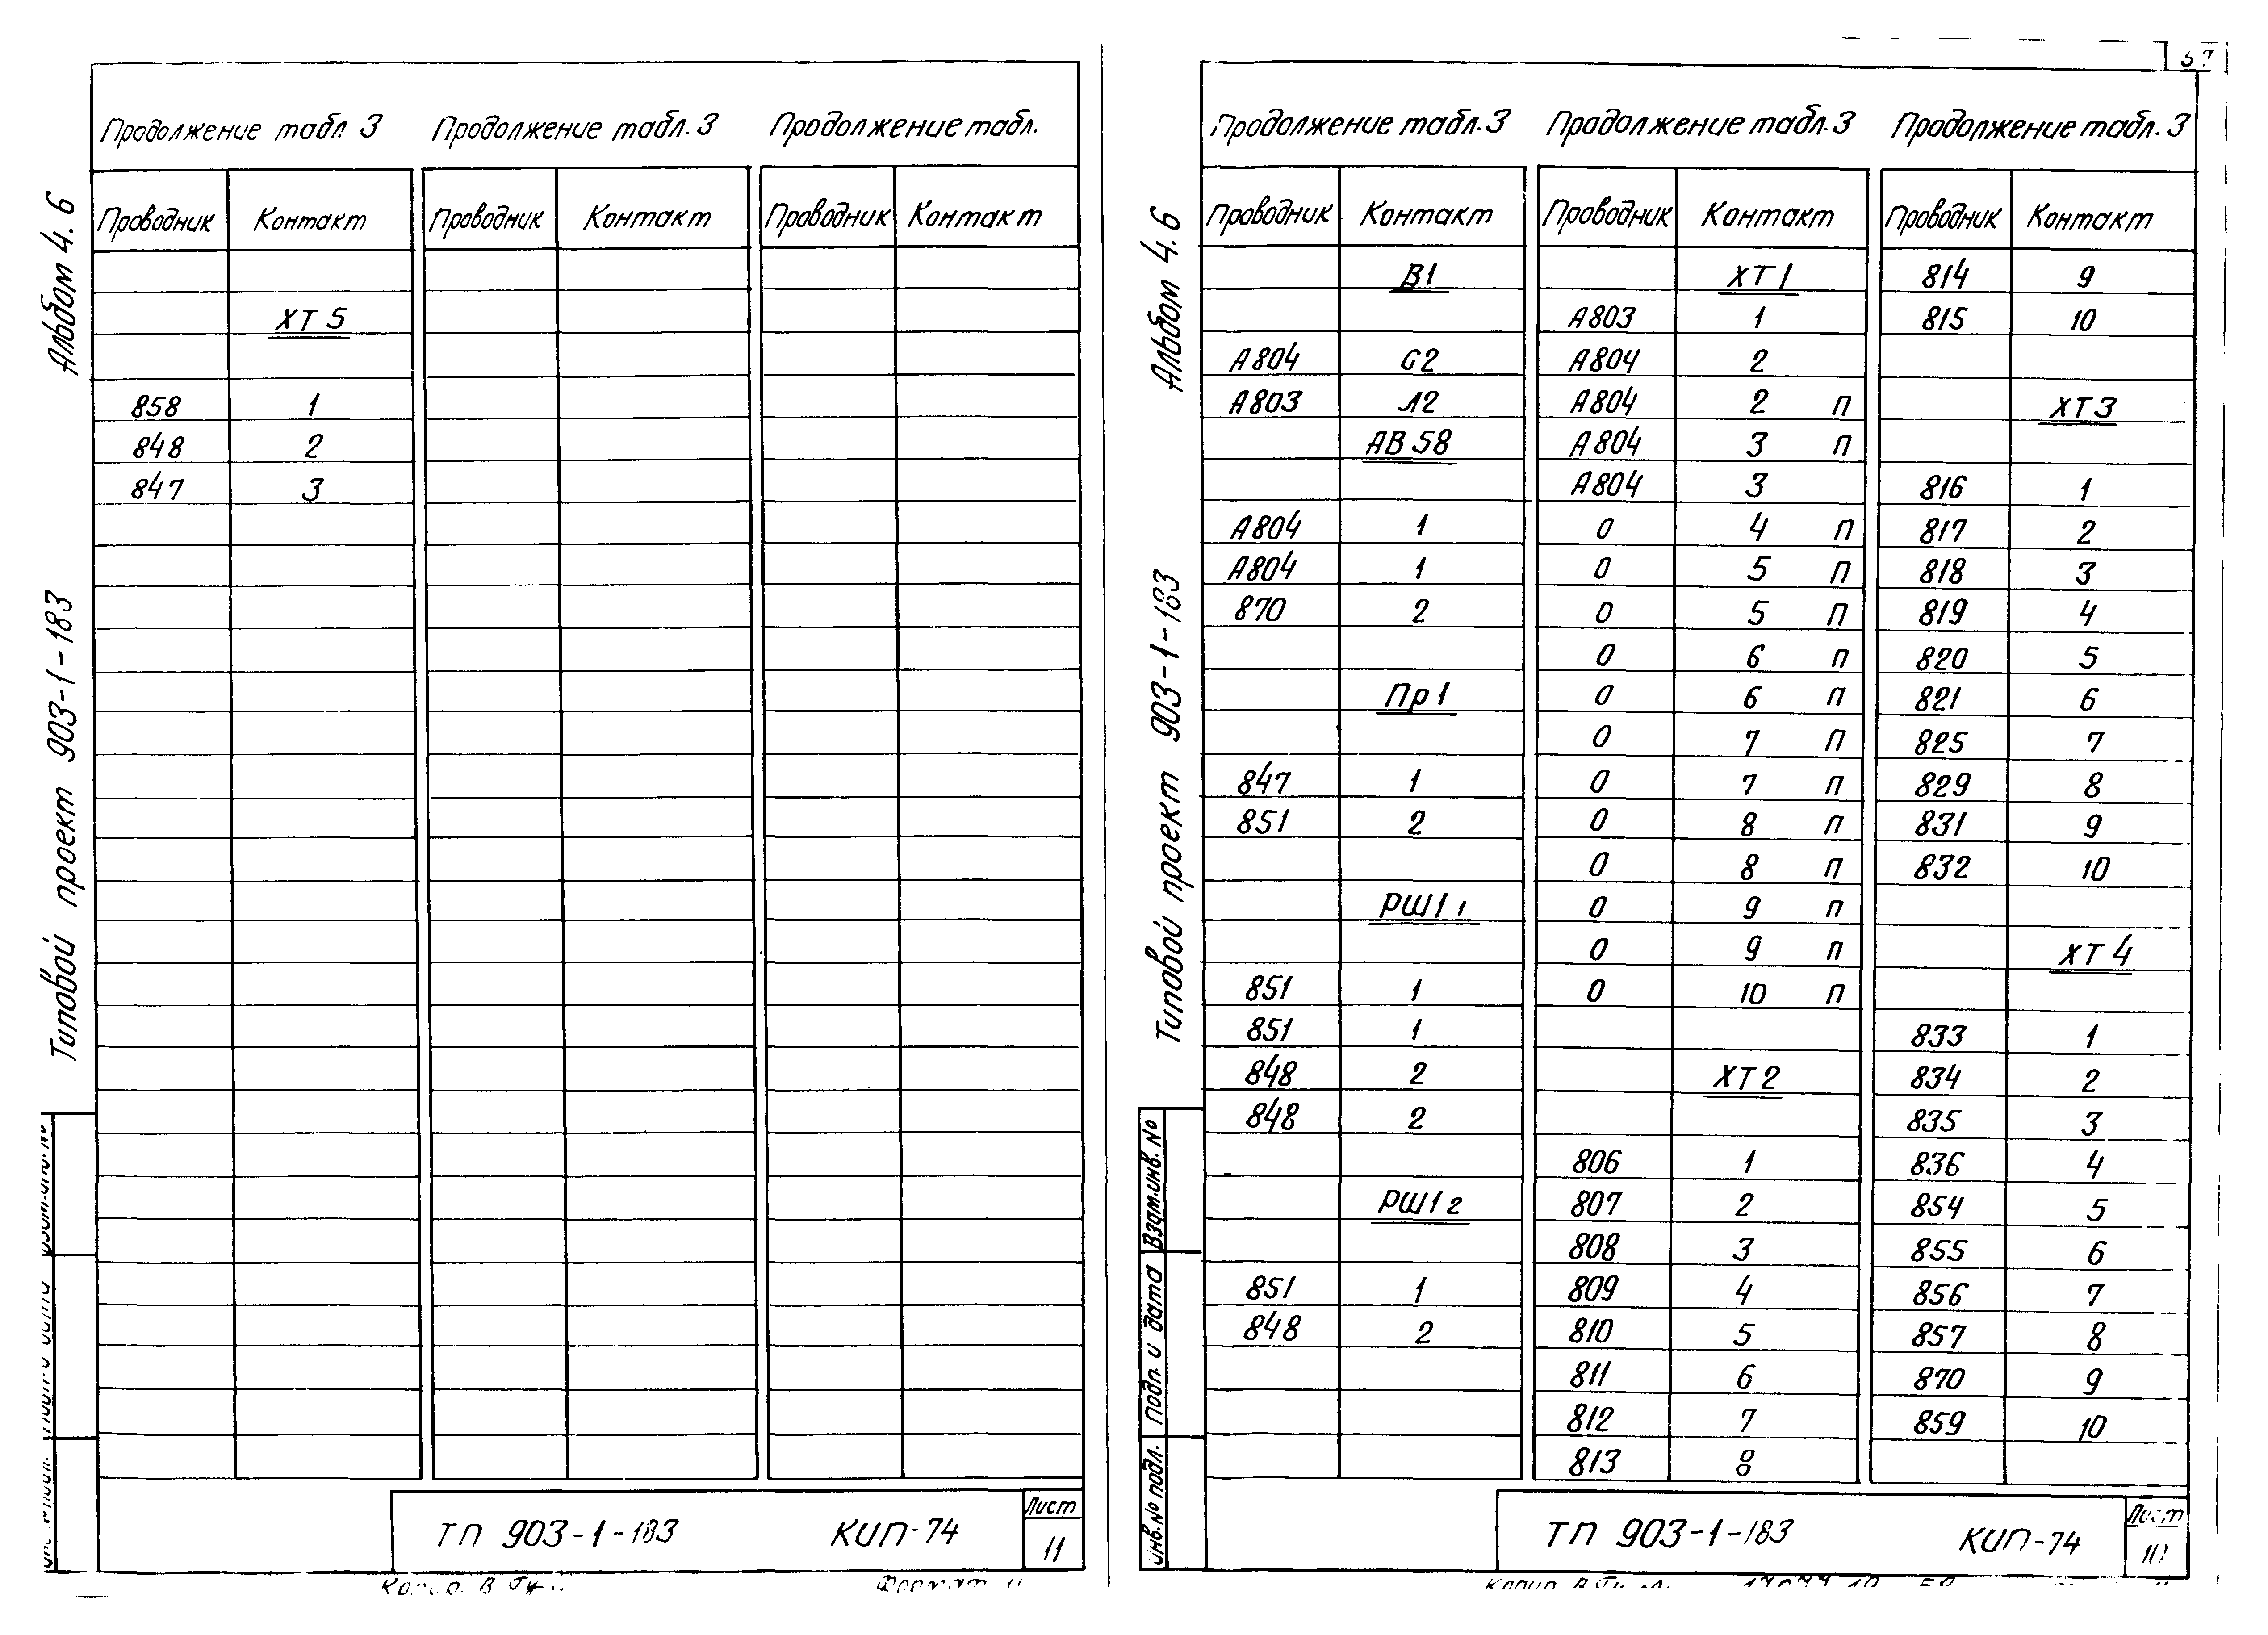 Продолжение табл 3 Продолжение табл. 3 Продолжение табл.
Проводник Контакт Проводник Контакт Проводник Контакт
ХТ 5
858 1
848 2
847 3
Альбом 4. 6
Типовой проект 903-1-183
ТП 903-1-183 КИП-74 Лист
11
Продолжение табл. 3
Проводник Контакт
В1
А804 G2
А803 Л2
АВ 58
А804 1
А804 1
870 2
Пр 1
847 1
851 2
РШ1 1
851 1
851 1
848 2
848 2
РШ1 2
851 1
848 2
Продолжение табл. 3
Проводник Контакт
ХТ 1
А803 1
А804 2
А804 2 П
А804 3 П
А804 3
0 4 П
0 5 П
0 5 П
0 6 П
0 6 П
0 7 П
0 7 П
0 8 П
0 8 П
0 9 П
0 9 П
0 10 П
ХТ 2
806 1
807 2
808 3
809 4
810 5
811 6
812 7
813 8
Продолжение табл. 3
Проводник Контакт
814 9
815 10
ХТ 3
816 1
817 2
818 3
819 4
820 5
821 6
825 7
829 8
831 9
832 10
ХТ 4
833 1
834 2
835 3
836 4
854 5
855 6
856 7
857 8
870 9
859 10
Альбом 4. 6
Типовой проект 903-1-183
Взам.инв. №
Подп. и дата
Инв.№ подл.
ТП 903-1-183 КИП-74 Лист
10